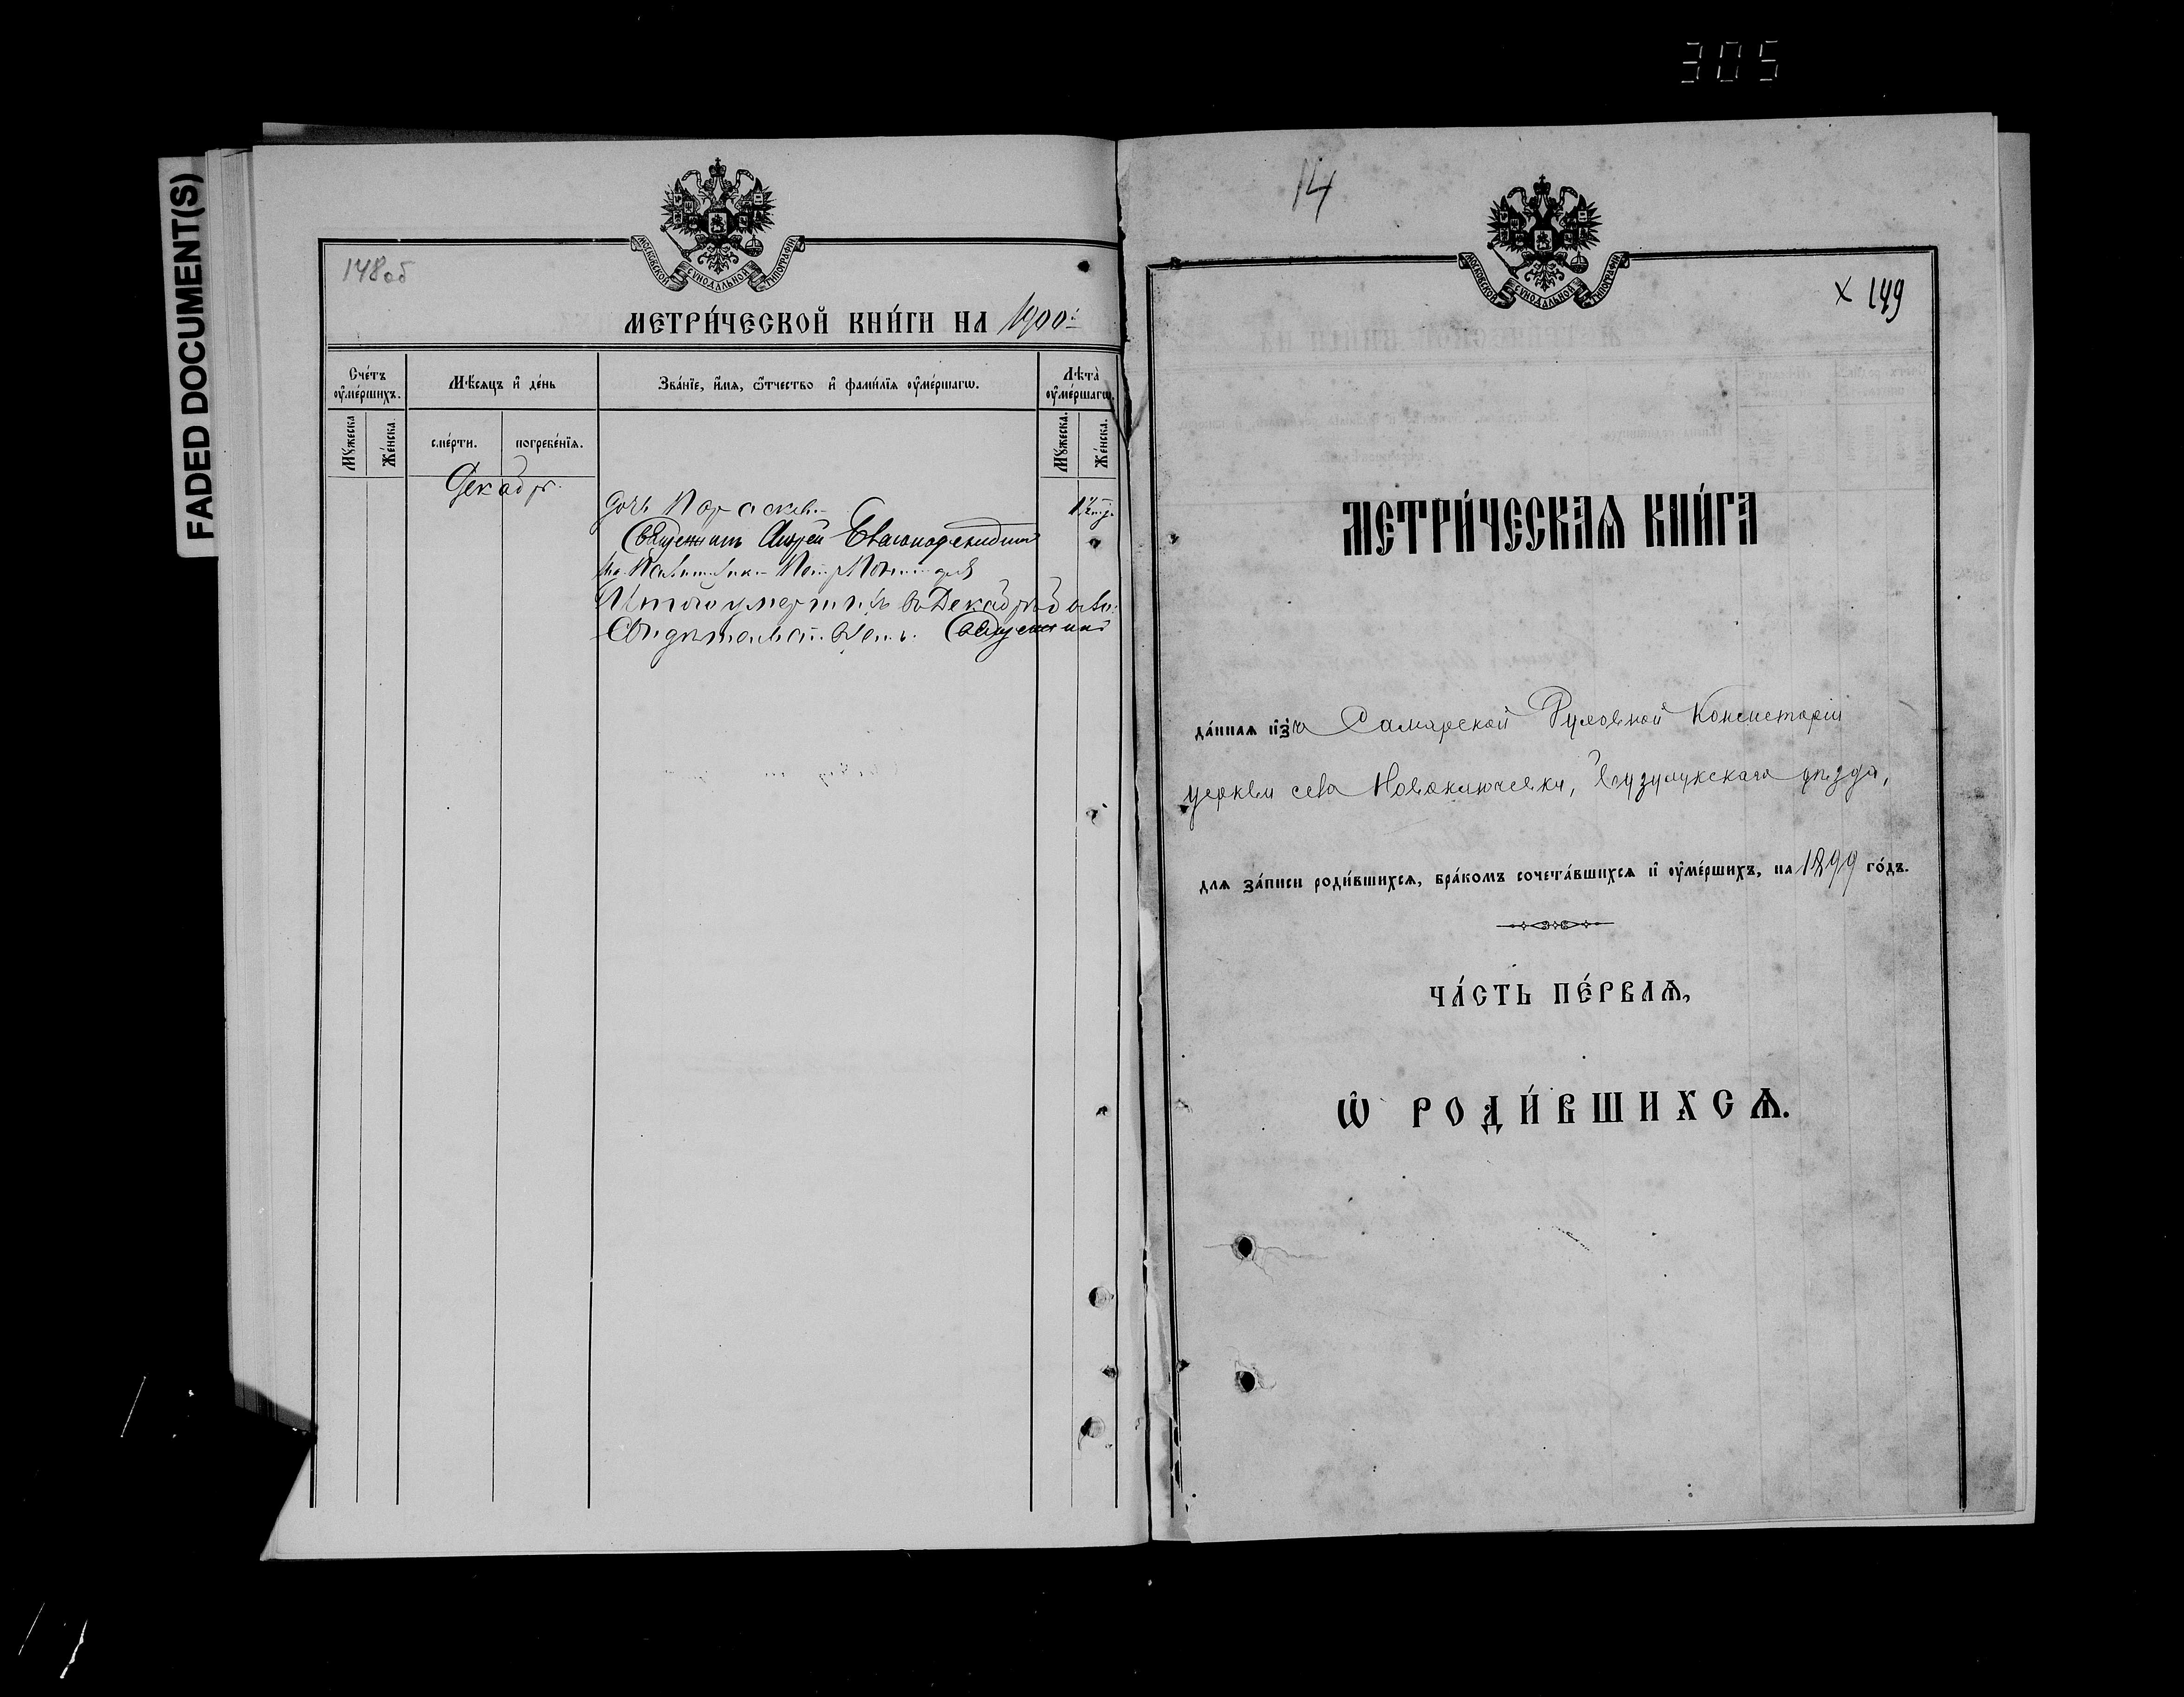 305
FADED DOCUMENT(S)
148об
МОСКОВСКОЙ СѴНОДАЛЬНОЙ ТИПОГРАФІИ
МЕТРИ́ЧЕСКОЙ КНИ́ГИ НА 1900
Сче́тъ оу҆ме́ршихъ.
Мѣ́сяцъ и҆ де́нь
Зва́нїе, и҆́мѧ, ѻ҆́тчество и҆ фами́лїѧ оу҆ме́ршагѡ.
Лѣ́та оу҆ме́ршагѡ.
Мꙋ́жеска
Же́нска.
сме́рти.
погребе́нїѧ.
Мꙋ́жеска.
Же́нска.
Декабрь
дочь Параскева
Священникъ Андрей
Итого умершихъ въ Декабрѣ
Священник
14
МОСКОВСКОЙ СѴНОДАЛЬНОЙ ТИПОГРАФІИ
х 149
МЕТРИ́ЧЕСКАѦ КНИ́ГА
да́ннаѧ и҆зъ Самарской Духовной Консисторіи
церкви села Новоключевки, Бузулукскаго уѣзда,
длѧ за́писи роди́вшихсѧ, бра́комъ сочета́вшихсѧ и҆ оу҆ме́ршихъ, на 1899 го́дъ.
ЧА́СТЬ ПЕ́РВАѦ,
Ѡ҆ РОДИ́ВШИХСѦ.